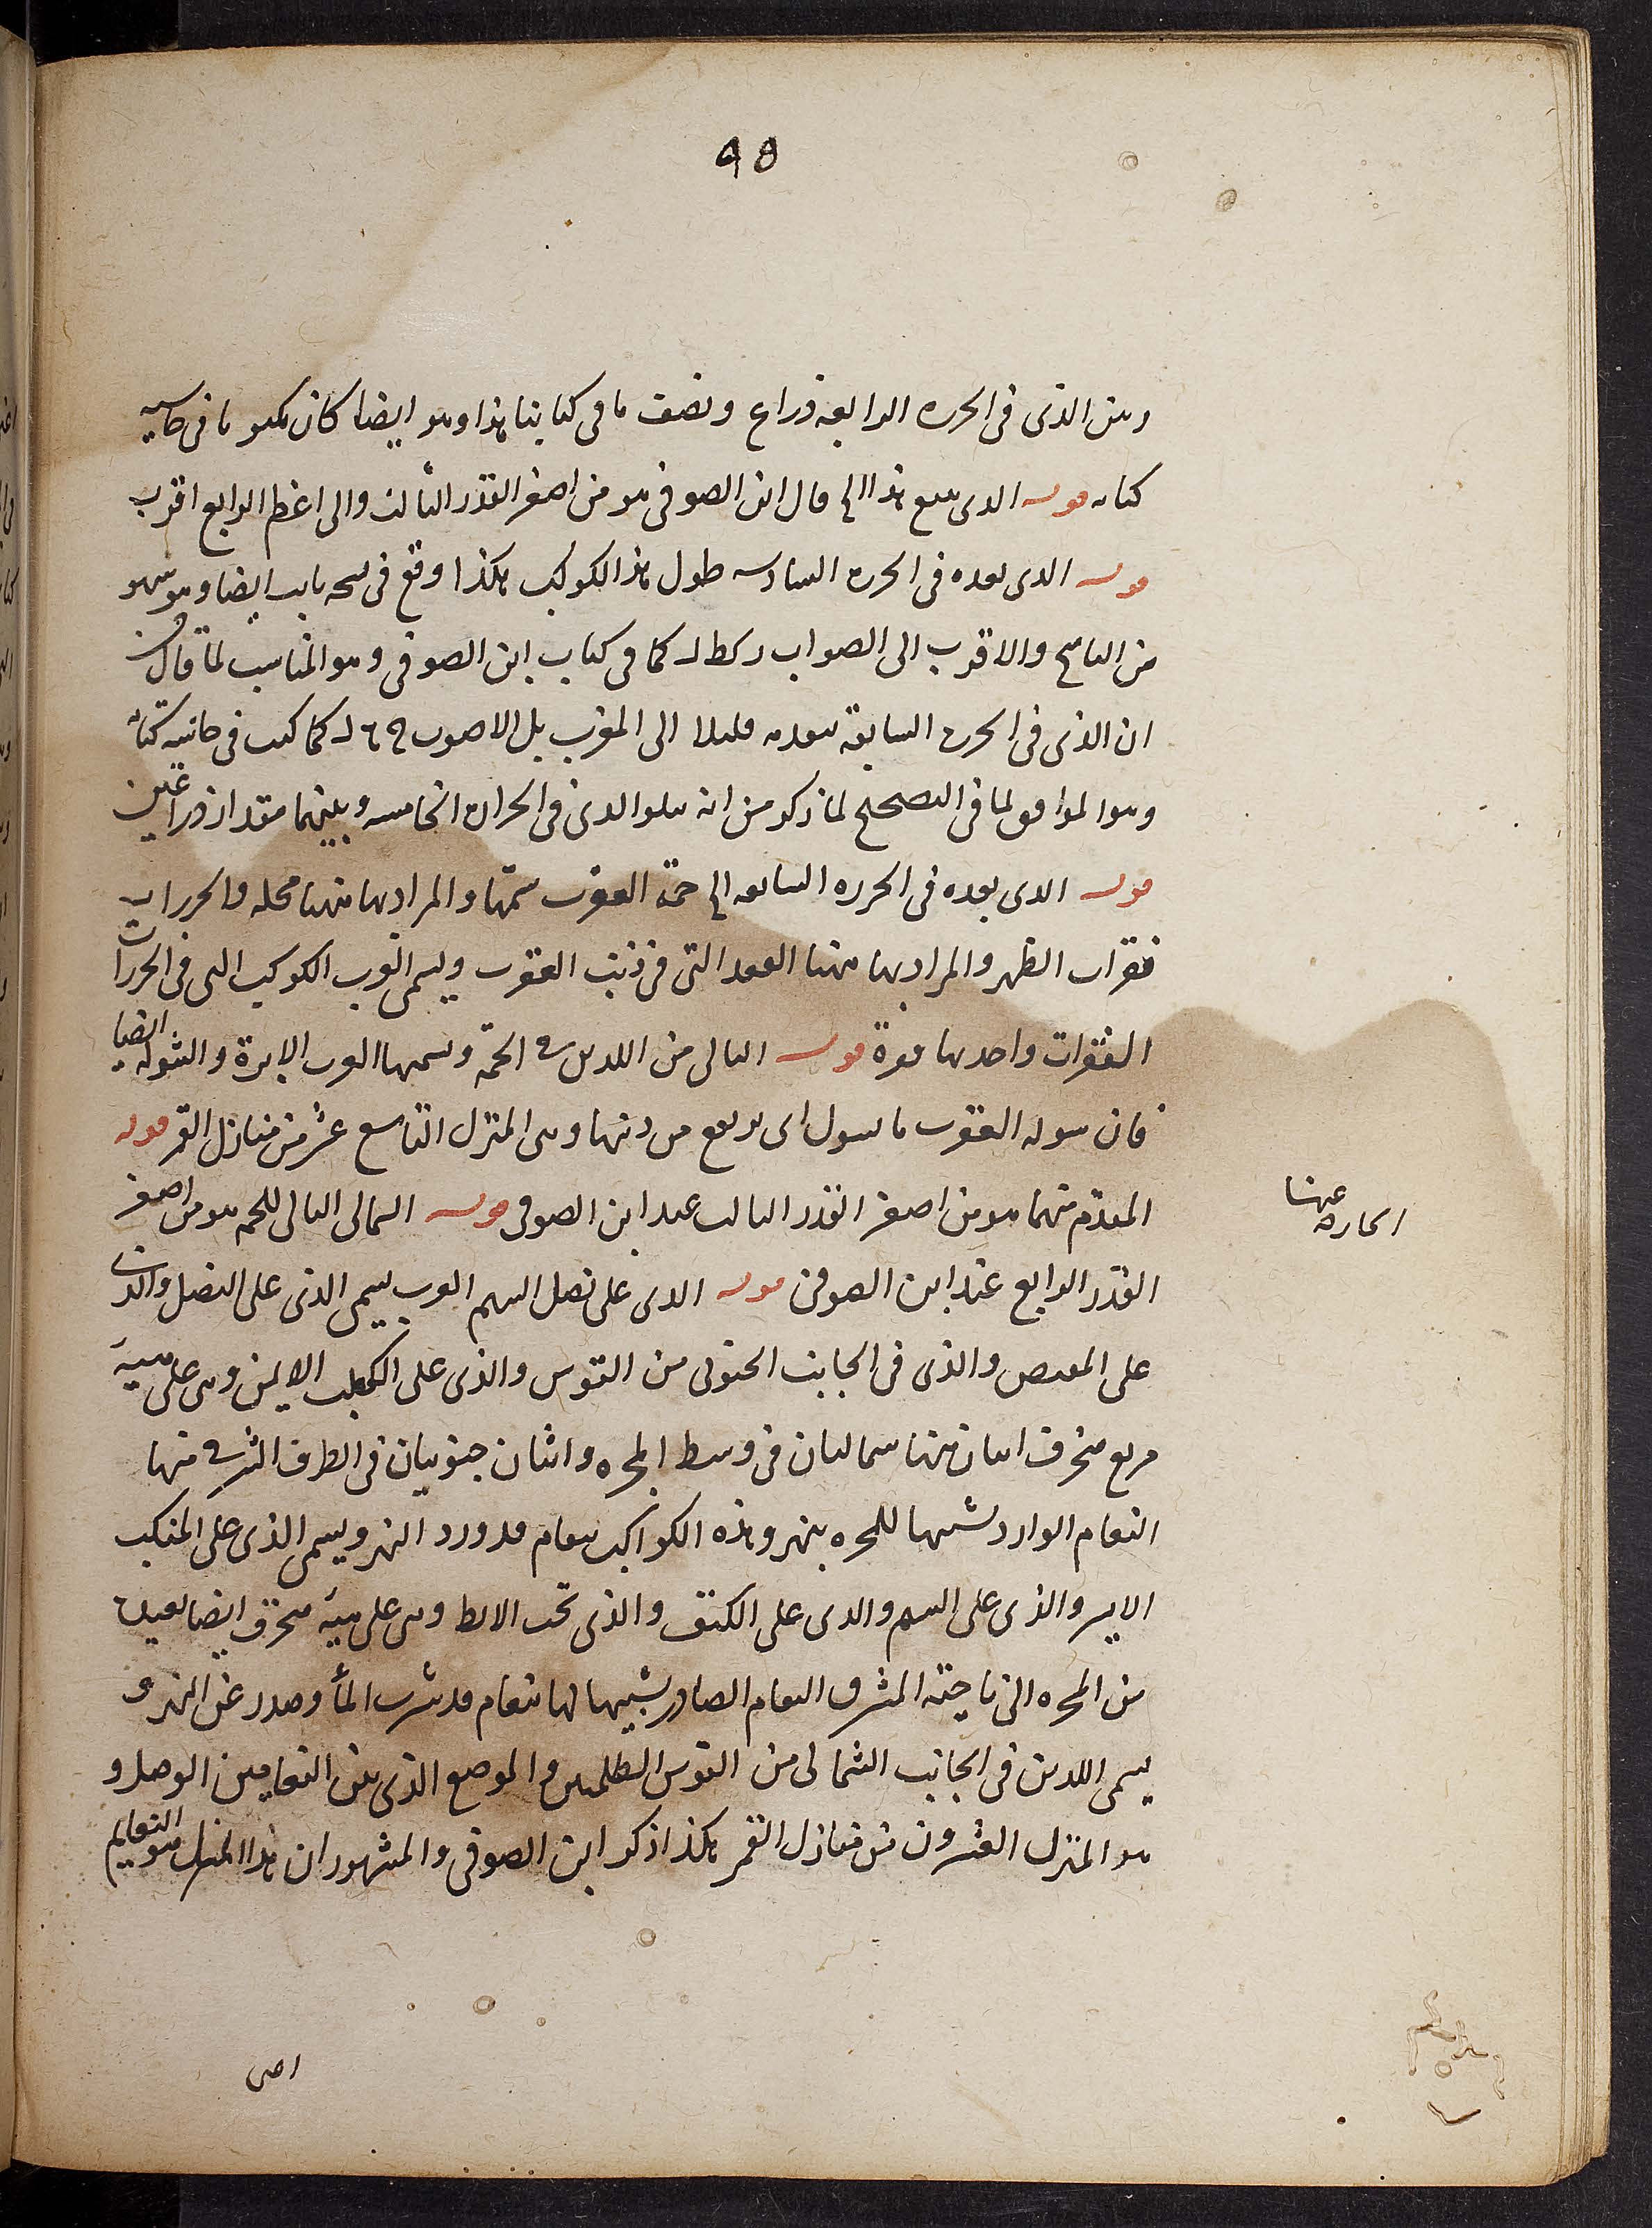 ٩٥
وبين الذى فى الحرزه الرابعة ذراع ونصف ما فى كتابنا هذا وهو ايضا كان مكتو با فى حاسيه
كتابه قوله الدى يتبع هذا الخ قال ابن الصوفى هو من اصغر القدر الثالث والى اعظم الرابع اقرب
قوله الدى بعده فى الحرزه السادسه طول هذا الكوكب هكذا وقع فى نسخه ثابت ايضا وهو سهو
من الناسخ والاقرب الى الصواب ر كط ل كما فى كتاب ابن الصوفى وهو المناسب لما قال
ان الذى فى الحرزه السابقة تتقدمه قليلا الى المغرب بل الاصوب كما كتب فى حاشية كتابه
وهو الموافق لما فى التصحيح لما ذكر من انه يتلو الدى فى الحرزات الخامسه وبينهما مقدار ذراعين
قوله الدى بعده فى الحرزه السابعه الخ حمة العقرب سمها والمراد بها ههنا محله والحرزات
فقرات الظهر والمراد بها ههنا العقد التى فى ذنب العقرب ويسمى العرب الكوكب التى فى الحرزات
الفقرات واحدتها فقرة قوله التالى من اللذين فى الحمة وتسميها العرب الابرة والشولة ايضا
فان شوله العقرب ما تشول اى يرتفع من ذنبها وهى المنزل التاسع عشر من منازل القمر قوله
المقدم منهما هو من اصغر القدر الثالث عند ابن الصوفى قوله السحابى التالى للحمه هو من اصغر
القدر الرابع عند ابن الصوفى قوله الدى على نصل السهم العرب يسمى الذى على النصل والذى
على المقبض والذى فى الجانب الجنوبى من القوس والذى على الكعب الايمن وهى على هيية
مربع منحرف اثنان منها شماليان فى وسط المجره واثنان جنوبيان فى الطرف الشرقى منها
النعام الوارد تشبيها للمجره بنهر وهذه الكواكب بنعام قد ورد النهر ويسمى الذى على المنكب
الايسر والذى على السهم والدى على الكتف والذى تحت الابط وهى على هيية منحرف ايضا بعيد
من المجره الى ناحية المشرق النعام الصادر تشبيها لها بنعام قد شرب الماء وصدر عن النهر و
يسمى اللذين فى الجانب الشمالى من القوس الظليمين والموضع الذى بين النعامين الوصل و
هو المنزل العشرون من منازل القمر هكذا ذكر ابن الصوفى والمشهور ان هذا المنزل هو النعايم